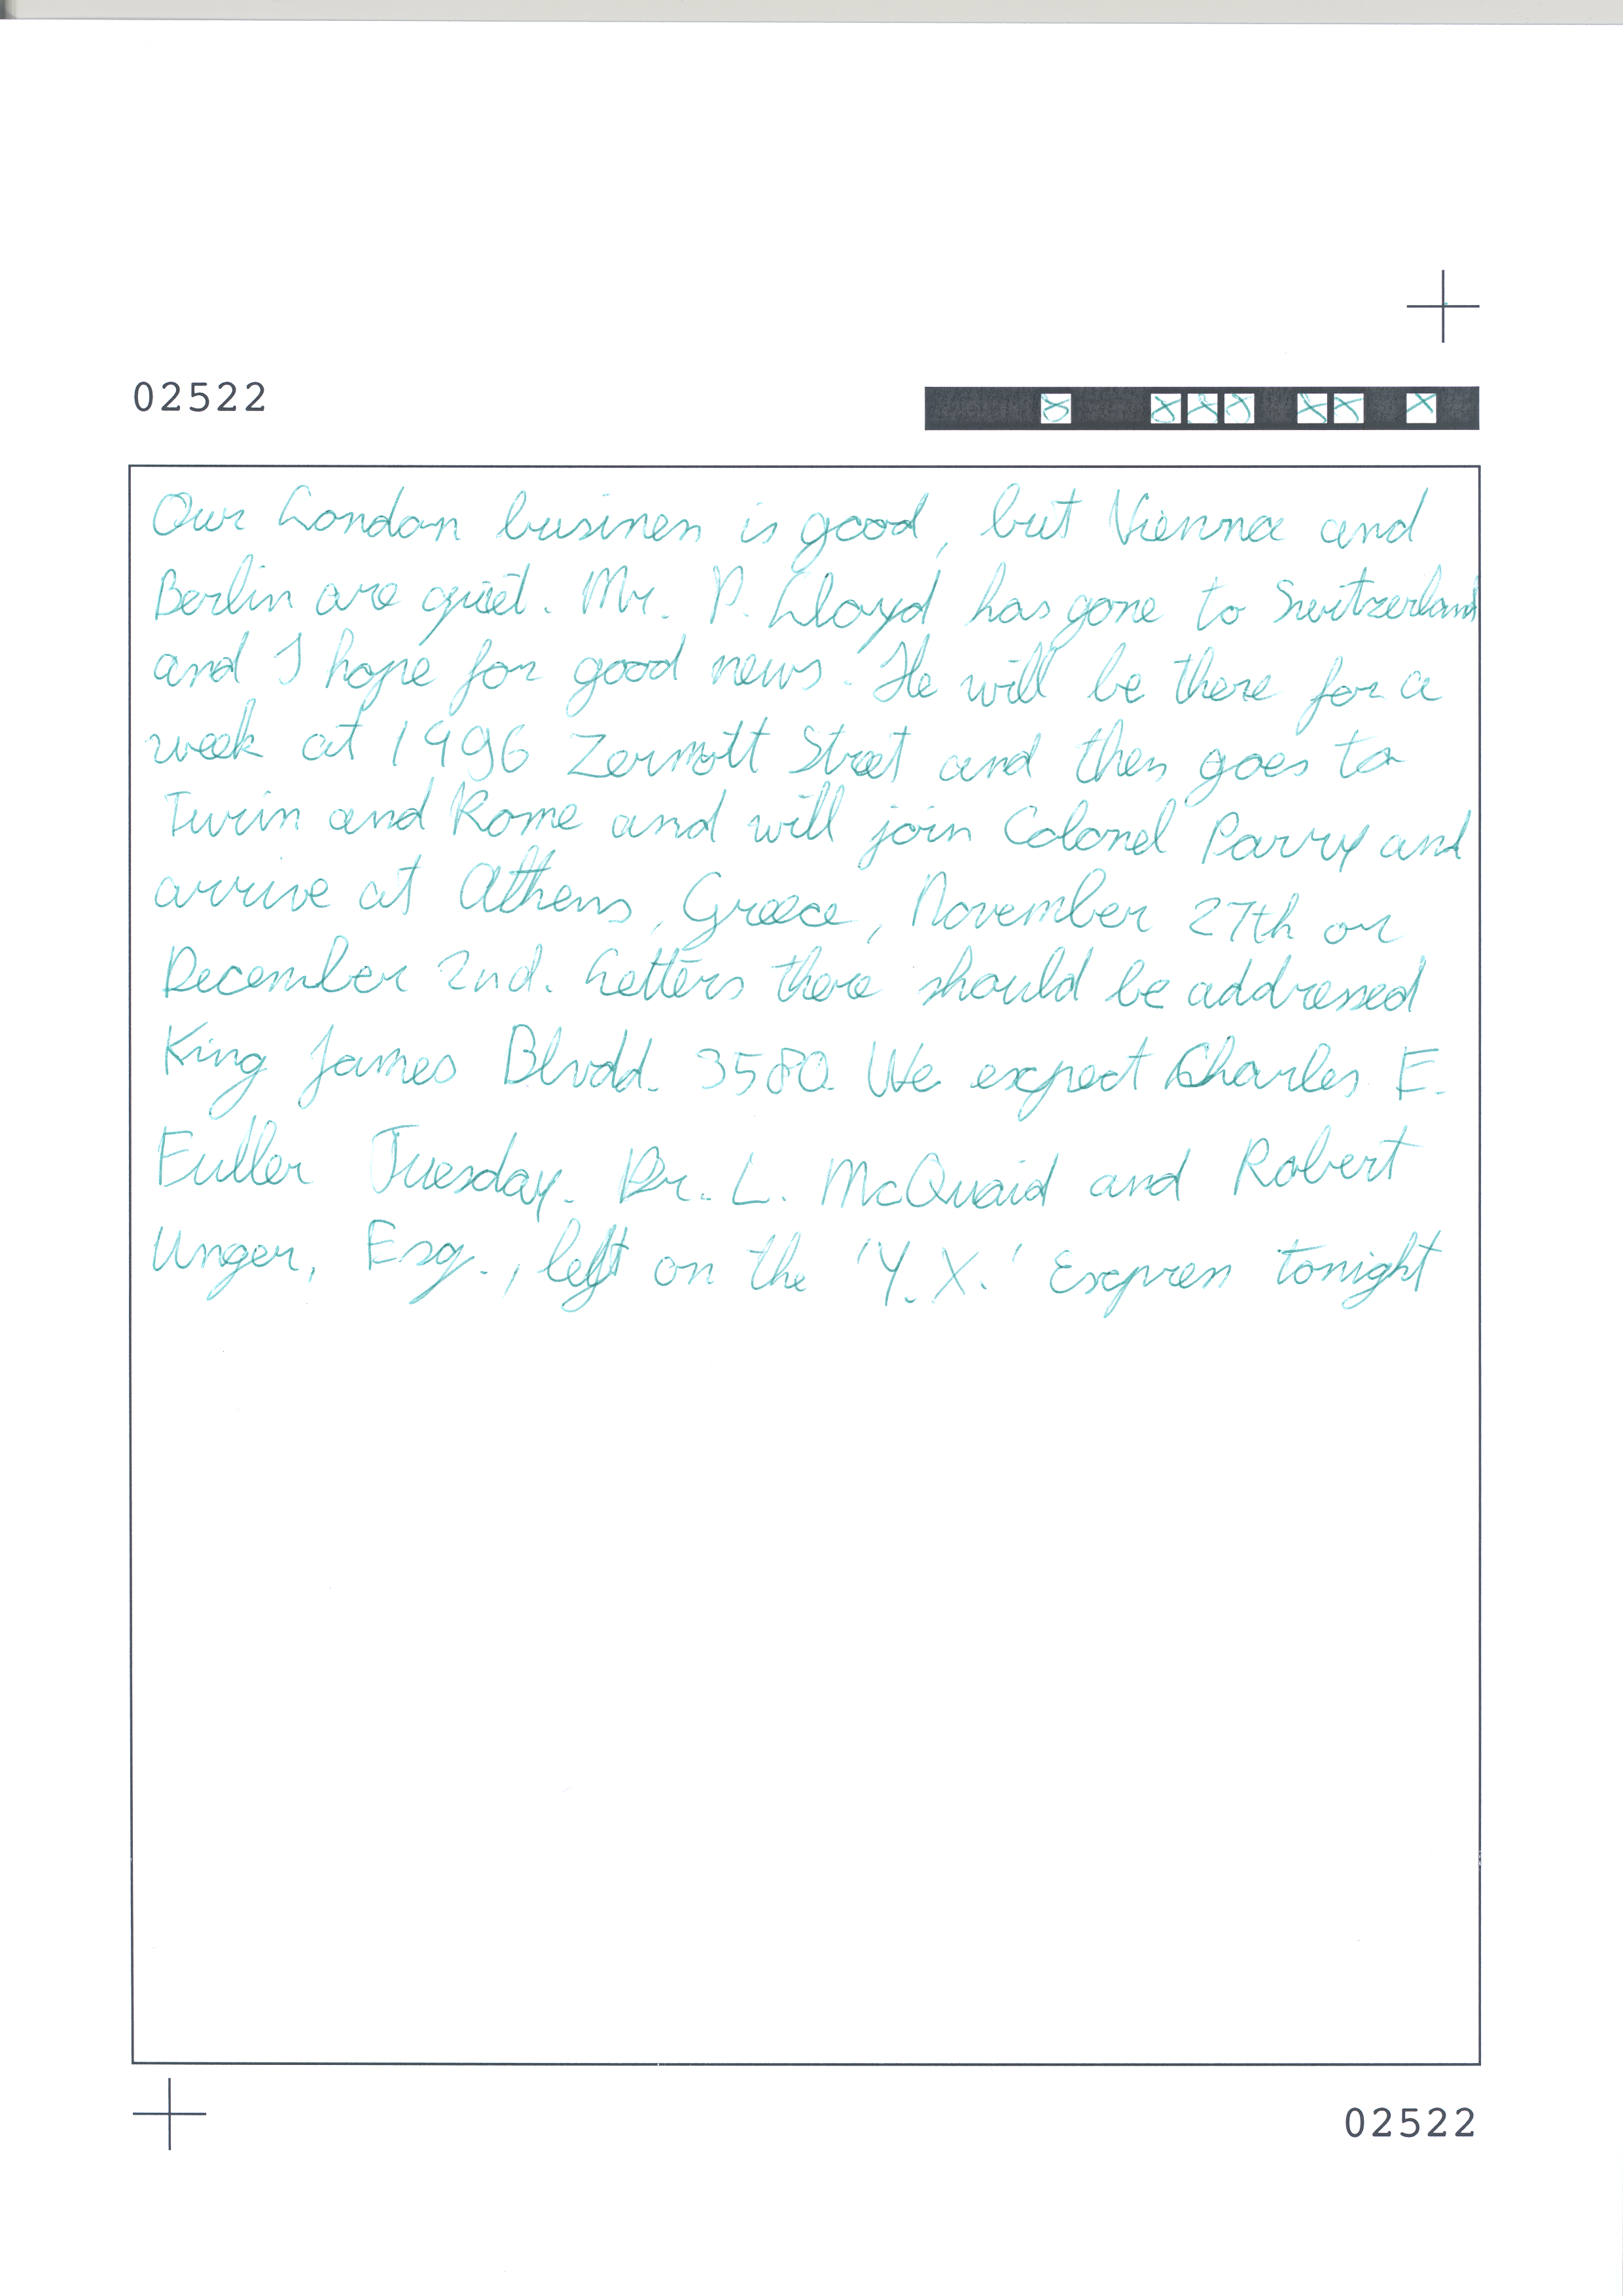 02522
Our London business is good, but Vienna and
Berlin are quiet. Mr. P. Lloyd has gone to Switzerland
and I hope for good news. He will be there for a
week at 1996 Zermott Street and then goes to
Turin and Rome and will join Colonel Parry and
arrive at Athens, Greece, November 27th or
December 2nd. Letters there should be addressed
King James Blvdd. 3580. We expect Charles E.
Fuller Tuesday. Dr. L. McQuaid and Robert
Unger, Esq., left on the 'Y.X.' Express tonight
02522